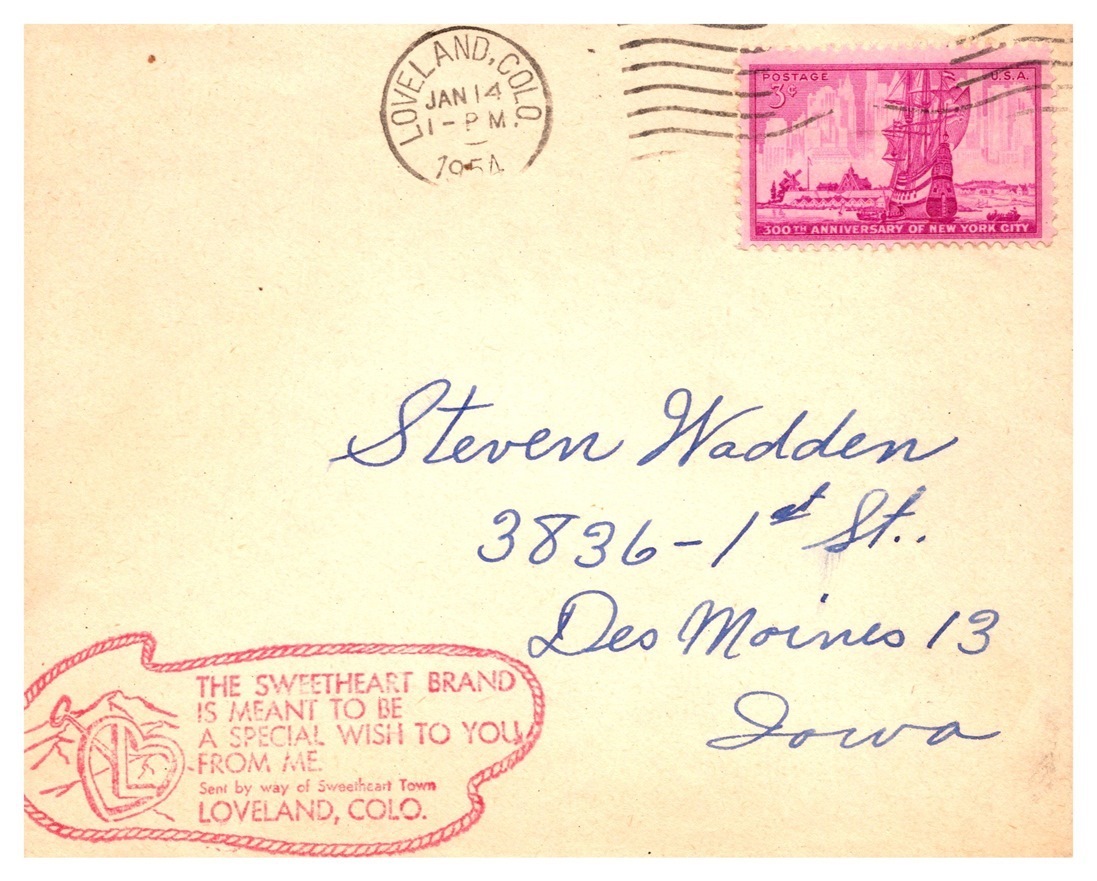 LOVELAND, COLO.
JAN 14
1 - P M.
1954
POSTAGE U.S.A.
3¢
300TH ANNIVERSARY OF NEW YORK CITY
Steven Wadden
3836-1st St..
Des Moines 13
Iowa
THE SWEETHEART BRAND
IS MEANT TO BE
A SPECIAL WISH TO YOU
FROM ME.
Sent by way of Sweetheart Town
LOVELAND, COLO.
L